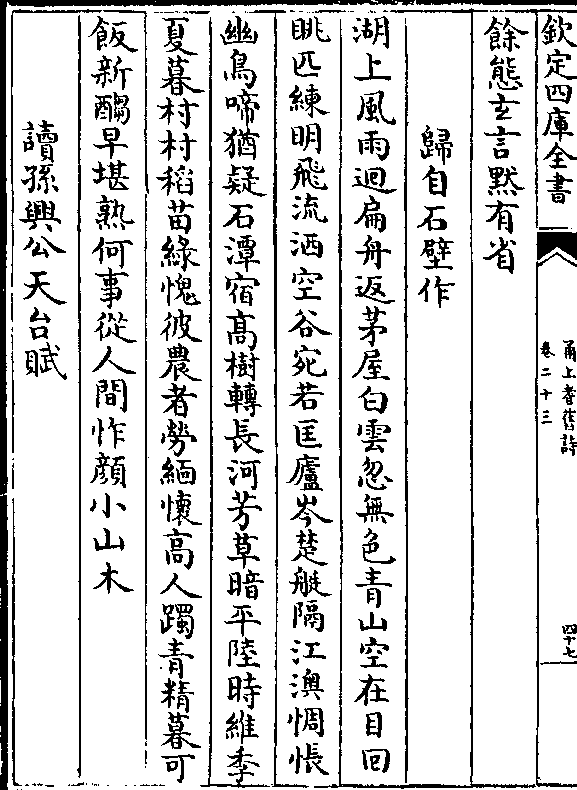 欽定四庫全書
甬上耆舊詩
卷二十三
四十七
餘態玄言默有省
歸自石壁作
湖上風雨迴扁舟返茅屋白雲忽無色青山空在目回
眺匹練明飛流洒空谷宛若匡廬岑楚艇隔江澳惆悵
幽鳥啼猶疑石潭宿高樹轉長河芳草暗平陸時維季
夏暮村村稻苗綠愧彼農者勞緬懷高人躅青精暮可
飯新醅早堪熟何事從人間怍顔小山木
讀孫興公天台賦